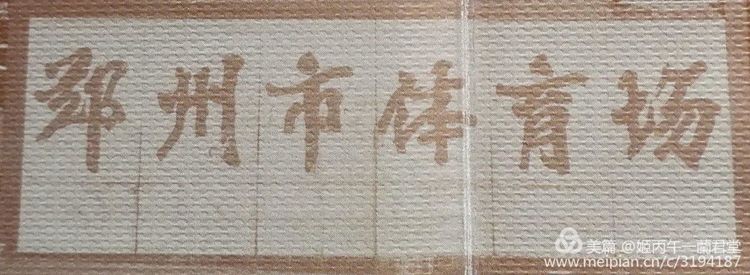 郑州市体育场
美篇 @姬丙午一蘭君堂
www.meipian.cn/c/3194187